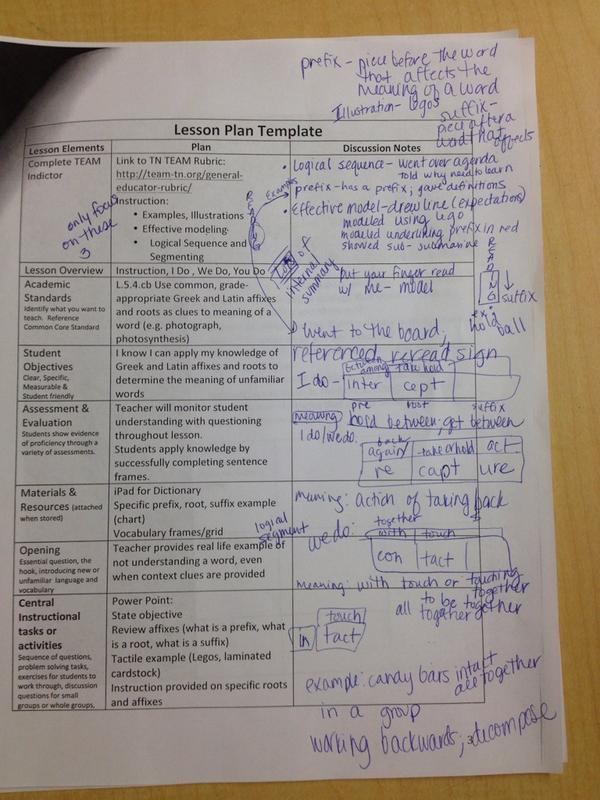 prefix - piece before the word
that affects the
meaning of a word
Illustration - legos
suffix -
piece after a
word that
affects
Lesson Plan Template
Lesson Elements
Plan
Discussion Notes
Complete TEAM
Indictor
only focus
on these
3
Link to TN TEAM Rubric:
http://team-tn.org/general-
educator-rubric/
Instruction:
• Examples, Illustrations
• Effective modeling
• Logical Sequence and
Segmenting
Examples
• Logical sequence - went over agenda
told why need to learn
prefix - has a prefix; gave definitions
• Effective model - drew line (expectation)
modeled using lego
modeled underlining prefix in red
showed sub - submarine
READING
READ
ING
↓ suffix
ex:
hold
ball
Lots of
internal
summary
Lesson Overview
Instruction, I Do , We Do, You Do
put your finger read
w/ me - model
Academic
Standards
Identify what you want to
teach. Reference
Common Core Standard
L.5.4.cb Use common, grade-
appropriate Greek and Latin affixes
and roots as clues to meaning of a
word (e.g. photograph,
photosynthesis)
went to the board,
referenced, reread sign
Student
Objectives
Clear, Specific,
Measurable &
Student friendly
I know I can apply my knowledge of
Greek and Latin affixes and roots to
determine the meaning of unfamiliar
words
I do -
between
among
take hold
inter
cept
pre
root
suffix
Assessment &
Evaluation
Students show evidence
of proficiency through a
variety of assessments.
Teacher will monitor student
understanding with questioning
throughout lesson.
Students apply knowledge by
successfully completing sentence
frames.
meaning
hold between; get between
I do/we do.
back
again
take or hold
act
re
capt
ure
Materials &
Resources (attached
when stored)
iPad for Dictionary
Specific prefix, root, suffix example
(chart)
Vocabulary frames/grid
meaning: action of taking back
logical
segment
we do:
together
with
touch
con
tact
Opening
Essential question, the
hook, introducing new or
unfamiliar language and
vocabulary
Teacher provides real life example of
not understanding a word, even
when context clues are provided
meaning: with touch or touching
together
to be together
all together
Central
Instructional
tasks or
activities
Sequence of questions,
problem solving tasks,
exercises for students to
work through, discussion
questions for small
groups or whole groups,
Power Point:
State objective
Review affixes (what is a prefix, what
is a root, what is a suffix)
Tactile example (Legos, laminated
cardstock)
Instruction provided on specific roots
and affixes
touch
in
tact
example: candy bars intact
all together
in a group
working backwards; decompose